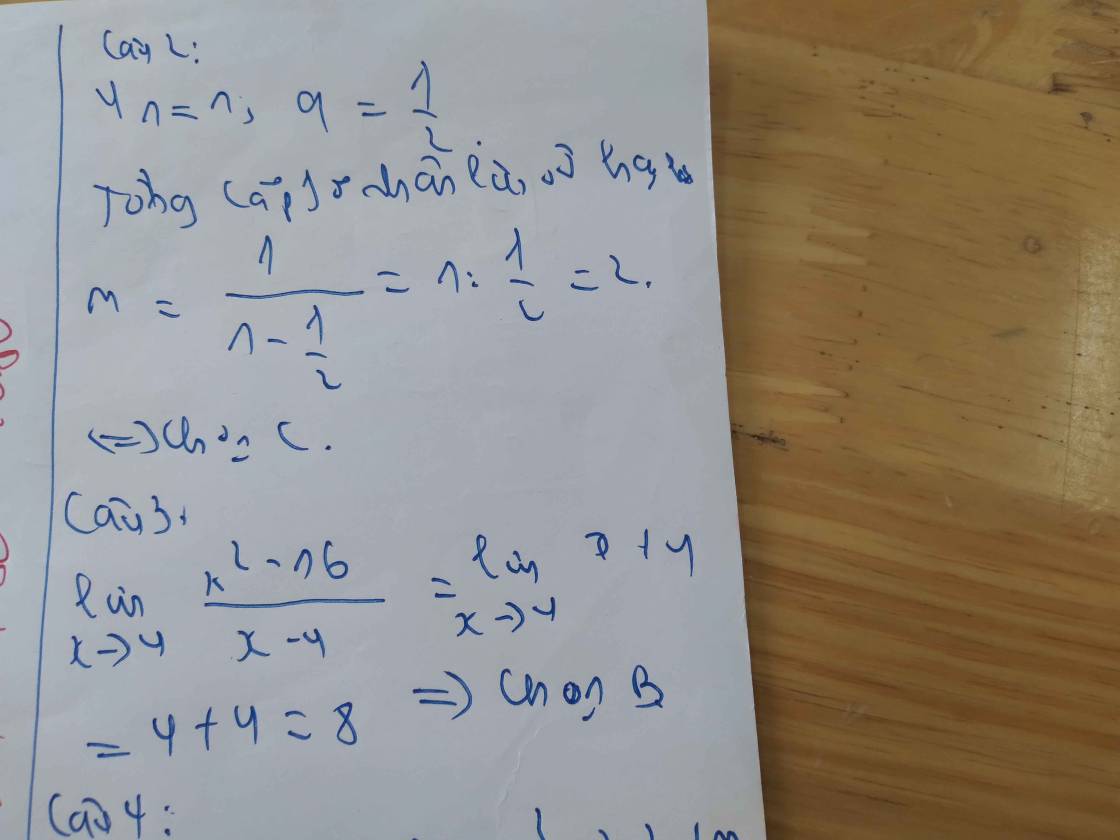 Câu 2:
u1 = 1; q = 1/2
Tổng cấp số nhân lùi vô hạn
= 1/(1 - 1/2) = 1 : 1/2 = 2.
<=> Chọn C.
Câu 3:
lim x->4 (x^2 - 16)/(x - 4) = lim x->4 x + 4
= 4 + 4 = 8 => Chọn B
Câu 4: